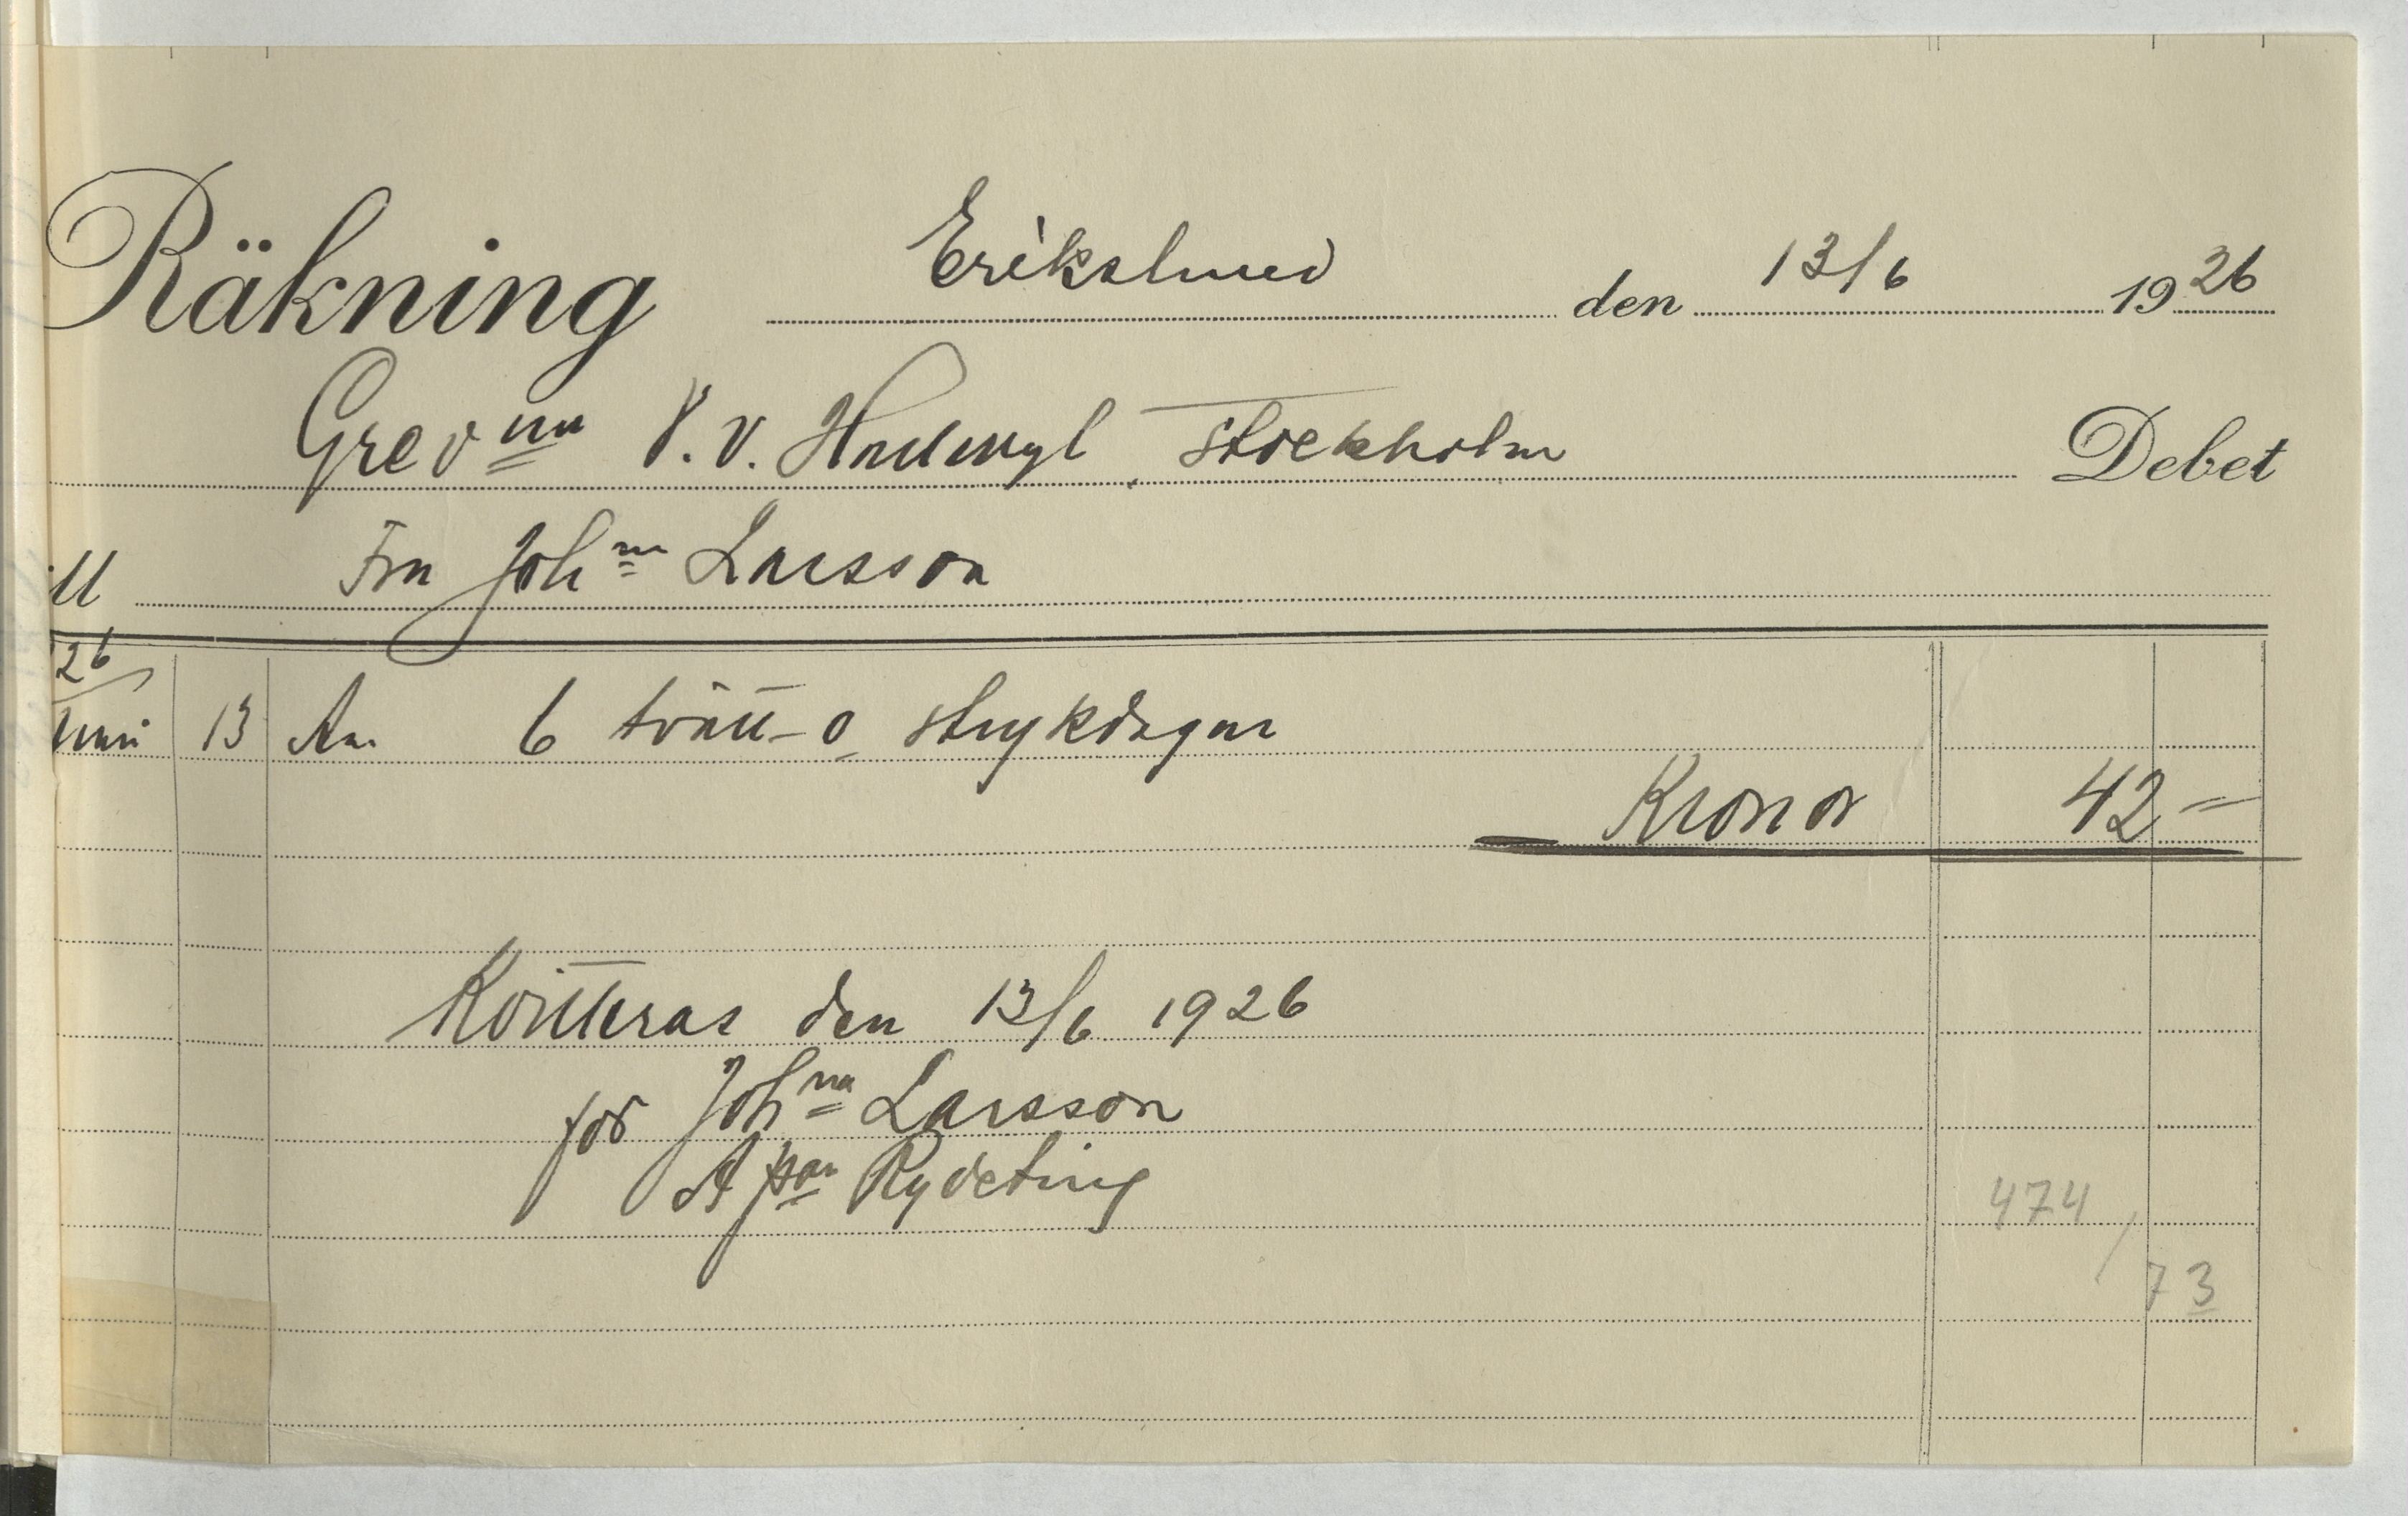 Räkning Erikslund den 13/6 1926
Grevnn V. v. Hallwyl Stockholm Debet
ill Fru Johna Larsson
26
Juni 13 An 6 tvätt- o strykdagar
Kronor 42 =
Kvitteras den 13/6 1926
för Johna Larsson
A Rydeting
474 /
73